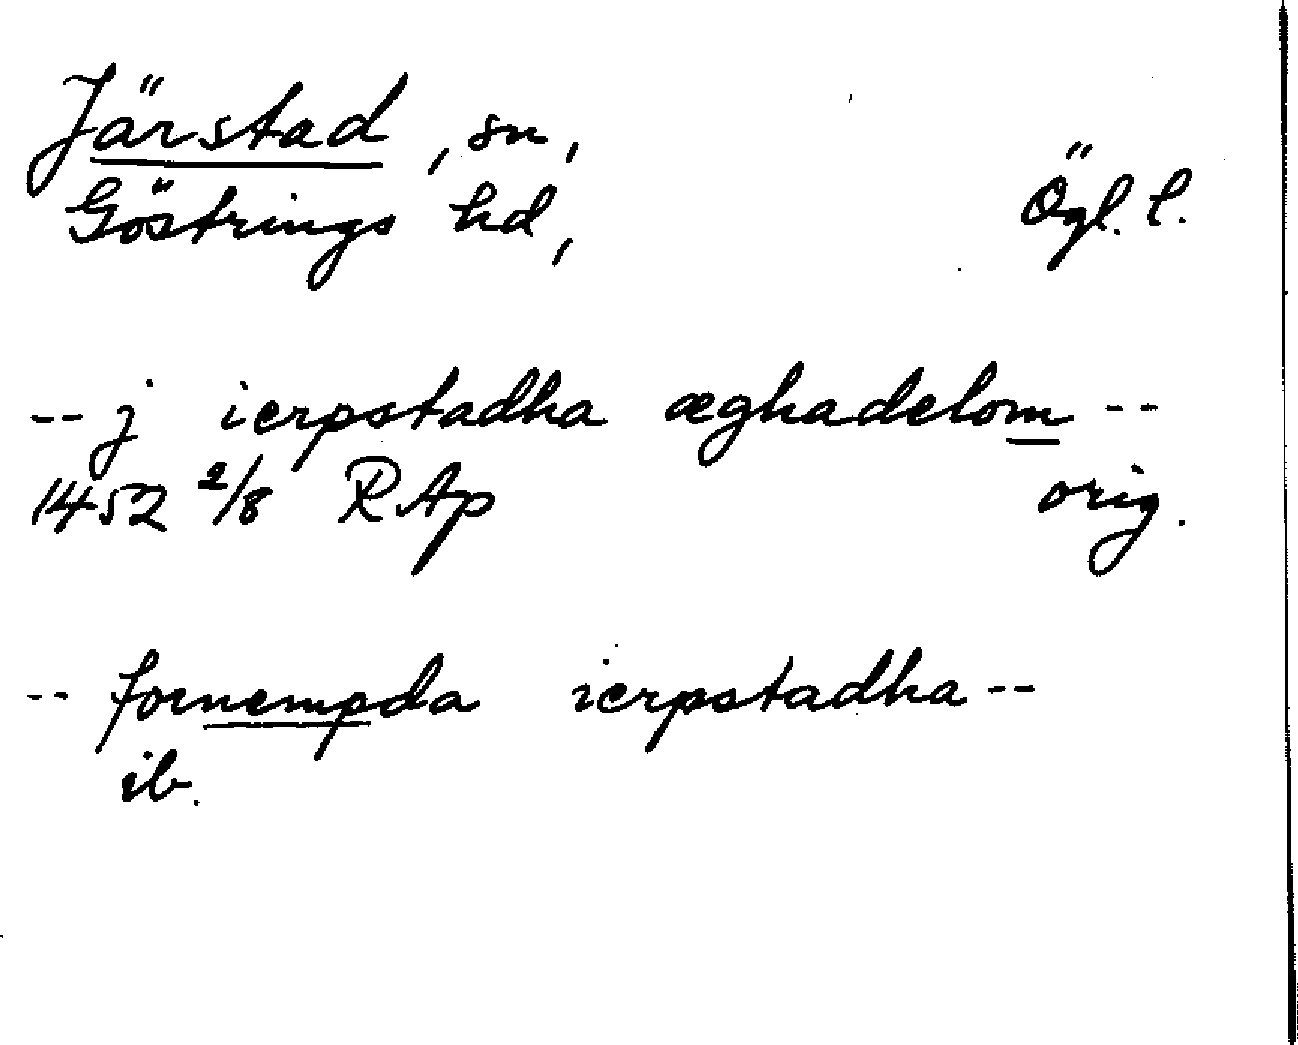 Järstad, sn,
Göstrings hd, Ögl. l.
-- j ierpstadha æghadelom --
1452 2/8 RAp orig.
-- fornempda ierpstadha --
ib.